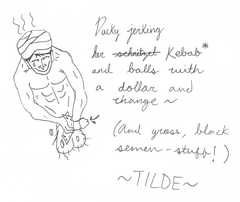 Ducky jerking
her schnitzel Kebab*
and balls with
a dollar and
thange ~
(And gross, black
semen-stuff!)
~TILDE~